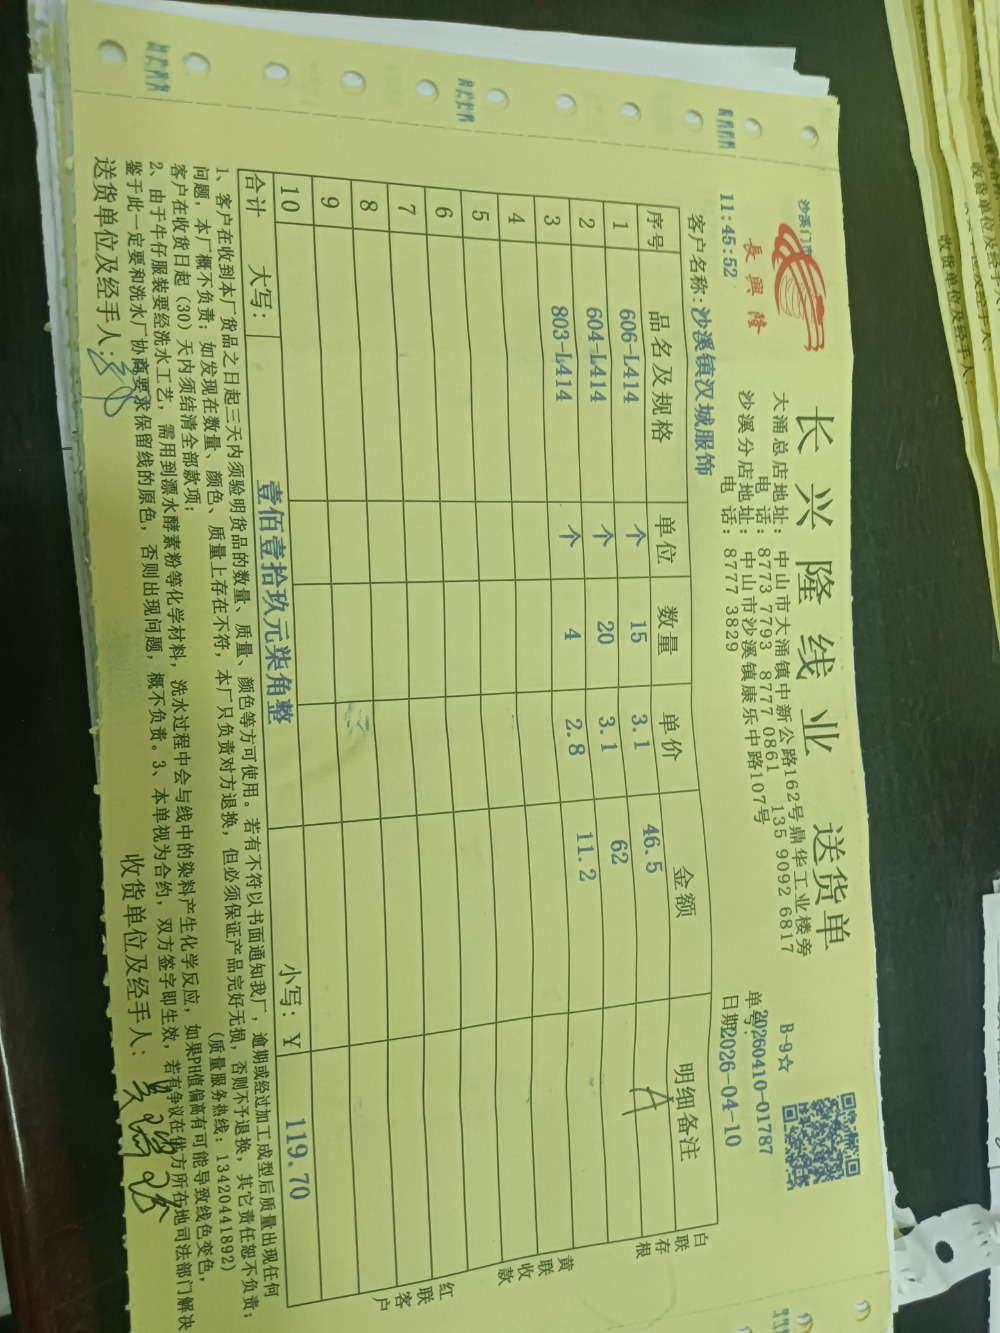 沙溪门市
長興隆
长兴隆线业 送货单
大涌总店地址：中山市大涌镇中新公路162号鼎华工业楼旁
电话：8773 7793 8777 0861 135 9092 6817
沙溪分店地址：中山市沙溪镇康乐中路107号
电话：8777 3829
B-9☆
单号：20260410-01787
日期2026-04-10
11:45:52
客户名称：沙溪镇汉城服饰
序号 品名及规格 单位 数量 单价 金额 明细备注
1 606-L414 个 15 3.1 46.5
2 604-L414 个 20 3.1 62
3 803-L414 个 4 2.8 11.2
4
5
6
7
8
9
10
合计 大写：壹佰壹拾玖元柒角整 小写：Y 119.70
白联存根
黄联收款
红联客户
1、客户在收到本厂货品之日起三天内须验明货品的数量、质量、颜色等方可使用。若有不符以书面通知我厂，逾期或经过加工成型后质量出现任何
问题，本厂概不负责；如发现在数量、颜色、质量上存在不符，本厂只负责对方退换，但必须保证产品完好无损，否则不予退换，其它责任恕不负责；
客户在收货日起（30）天内须结清全部款项； （质量服务热线：13420441892）
2、由于牛仔服装要经洗水工艺，需用到漂水酵素粉等化学材料，洗水过程中会与线中的染料产生化学反应，如果PH值偏高有可能导致线色变色，
鉴于此一定要和洗水厂协商要求保留线的原色，否则出现问题，概不负责。3、本单视为合约，双方签字即生效，若有争议在供方所在地司法部门解决
送货单位及经手人： 收货单位及经手人：
收货单位及经手人：
收货单位及经手人：